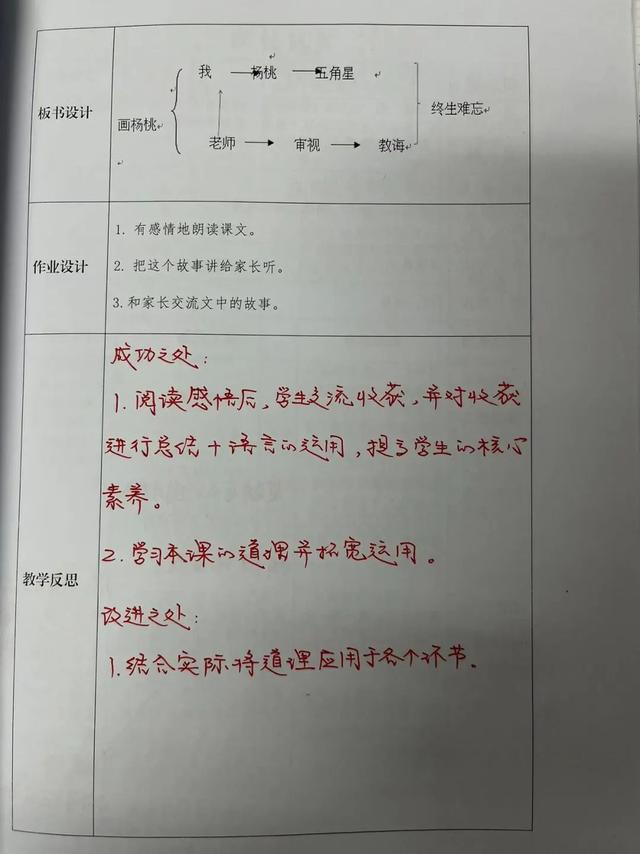 板书设计
画杨桃
我 杨桃 五角星
老师 审视 教诲
终生难忘
作业设计
1. 有感情地朗读课文。
2. 把这个故事讲给家长听。
3.和家长交流文中的故事。
教学反思
成功之处：
1. 阅读感悟后，学生交流收获，并对收获
进行总结＋语言的运用，提高学生的核心
素养。
2. 学习本课的道理并拓宽运用。
改进之处：
1.结合实际将道理应用于各个环节。